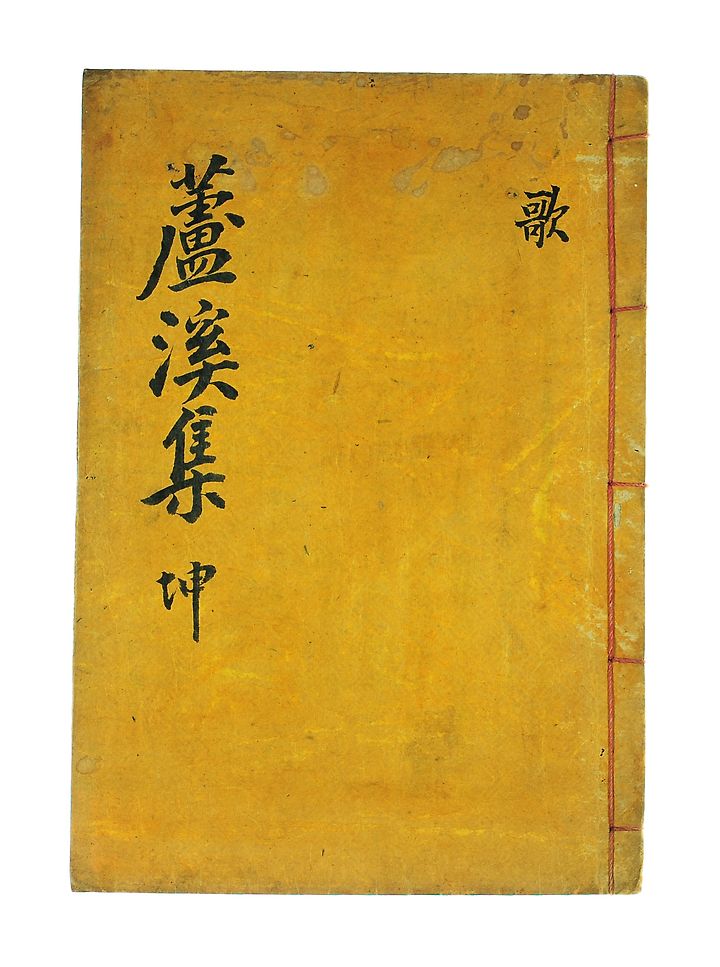 歌
蘆溪集 坤